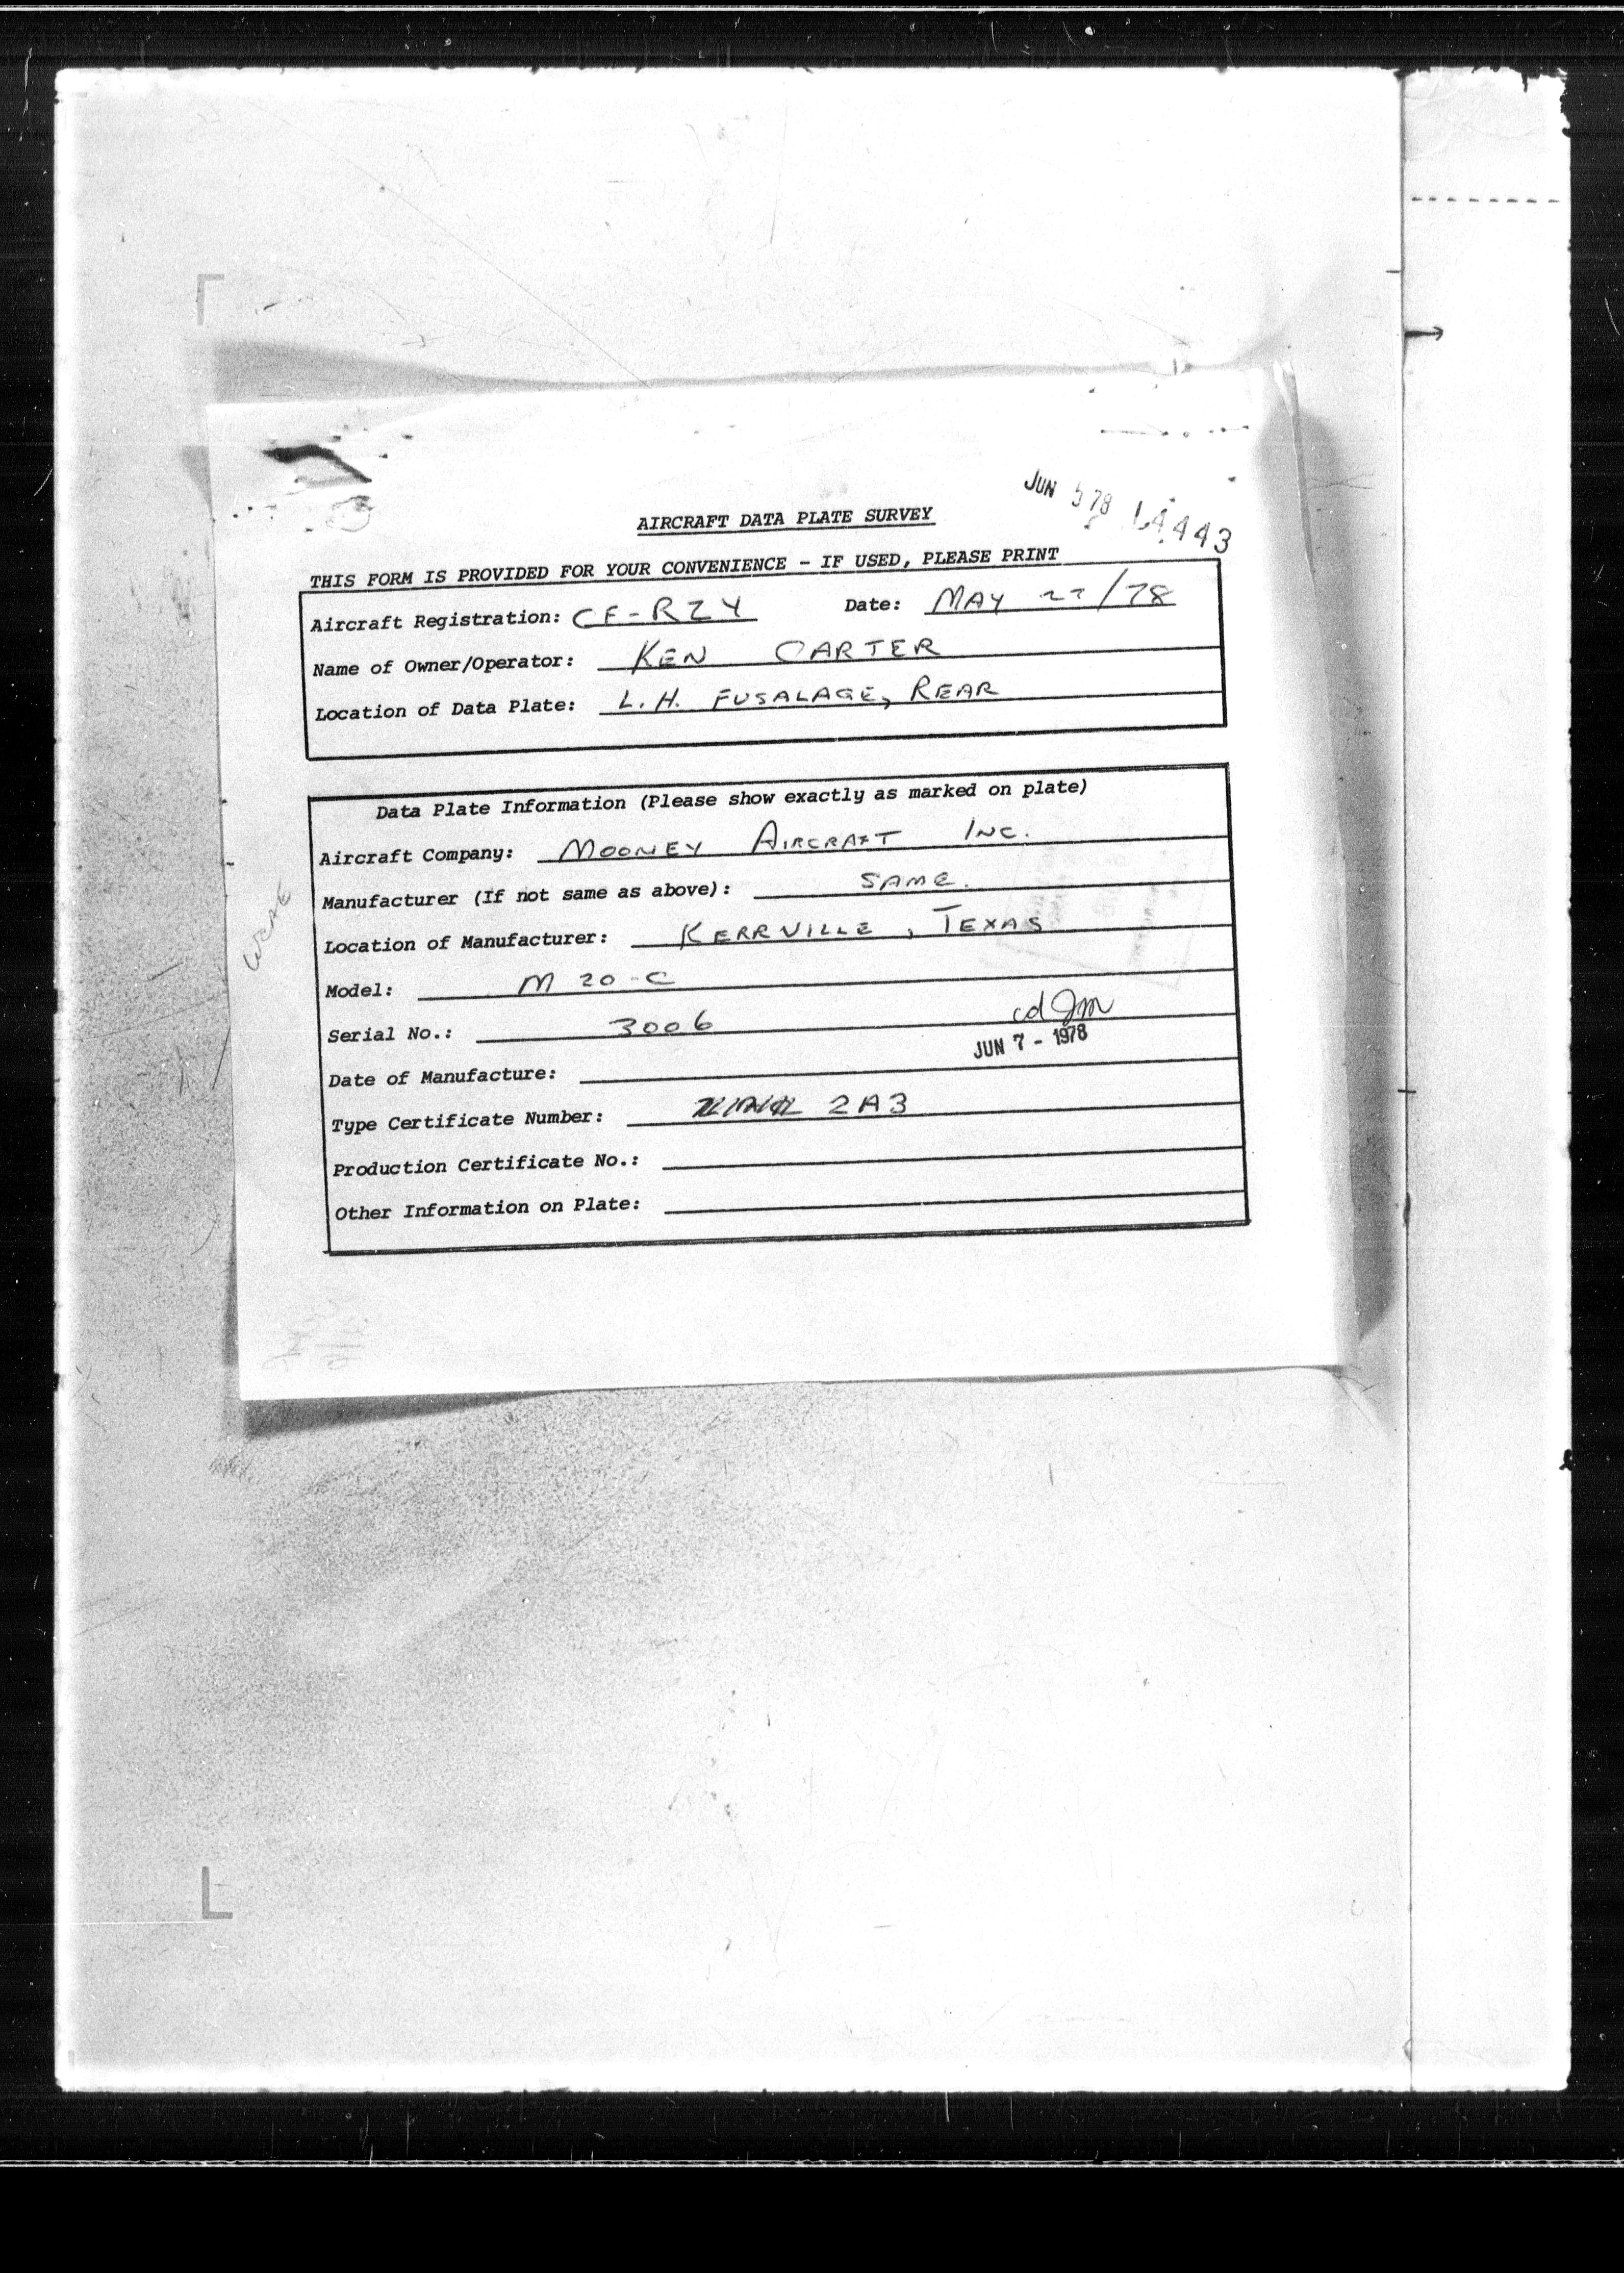 JUN 5 78 14443
AIRCRAFT DATA PLATE SURVEY
THIS FORM IS PROVIDED FOR YOUR CONVENIENCE - IF USED, PLEASE PRINT
Aircraft Registration: CF-RZY Date: MAY 22/78
Name of Owner/Operator: KEN CARTER
Location of Data Plate: L.H. FUSALAGE, REAR
Data Plate Information (Please show exactly as marked on plate)
Aircraft Company: MOONEY AIRCRAFT INC.
Manufacturer (If not same as above): SAME.
Location of Manufacturer: KERRVILLE, TEXAS
Model: M 20-C
Serial No.: 3006
JUN 7 - 1978
Date of Manufacture:
Type Certificate Number: 2A3
Production Certificate No.:
Other Information on Plate: